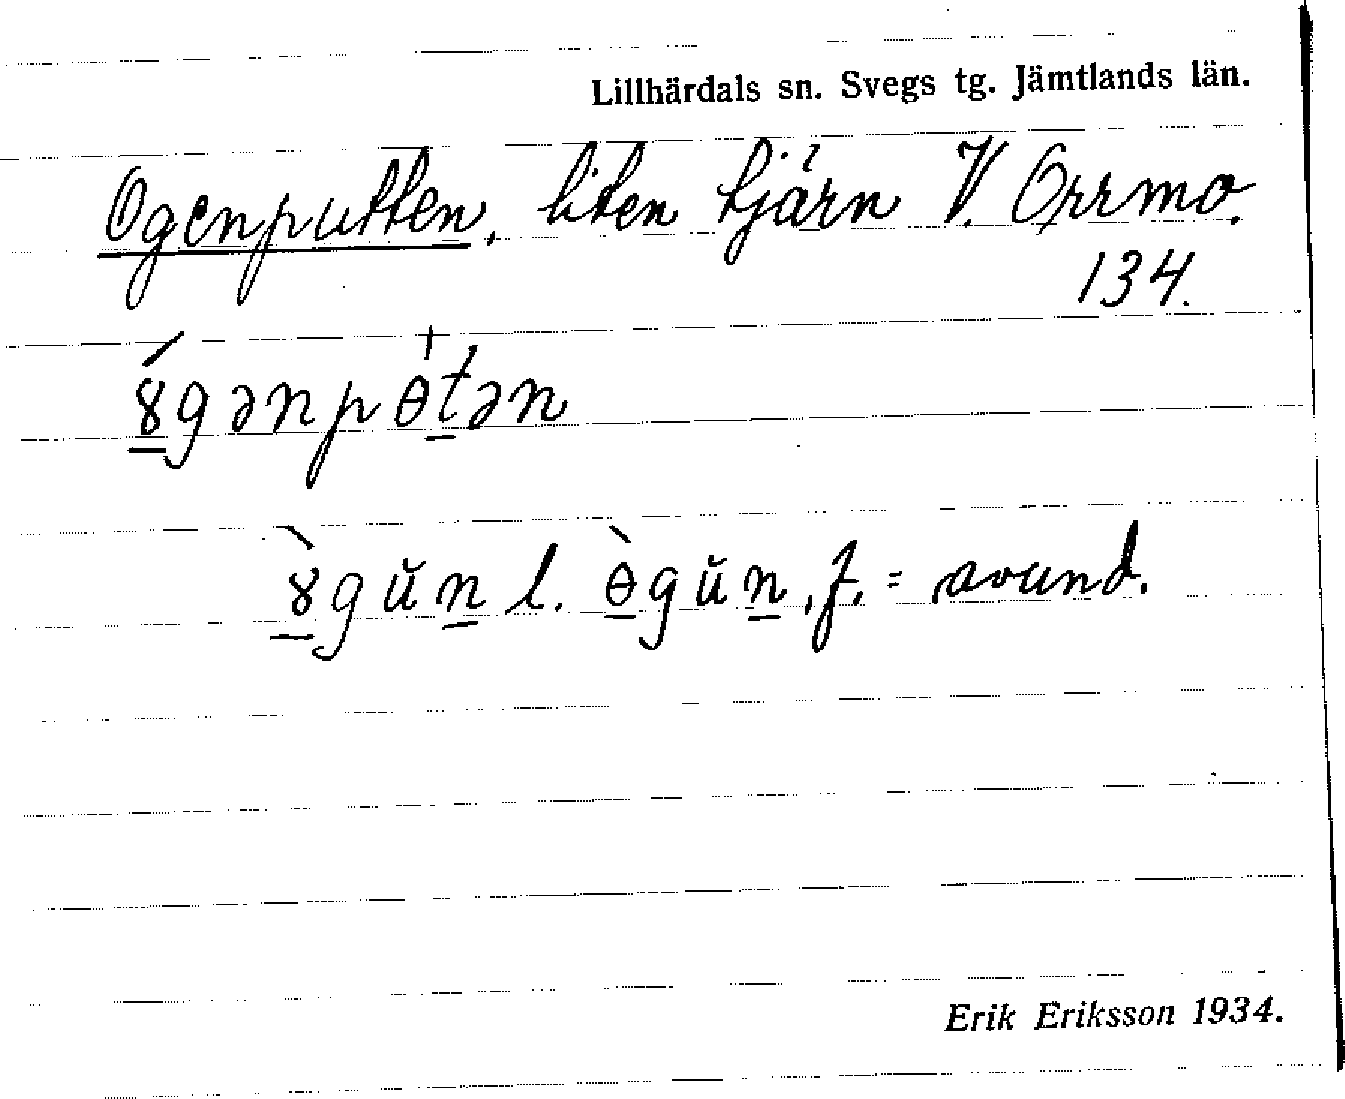 Lillhärdals sn. Svegs tg. Jämtlands län.
Ogenputten, liten tjärn i V. Orrmo.
134.
ȣ́gənpɵtən
ȣ̀gŭn l. ɵ̀gŭn, f. = avund.
Erik Eriksson 1934.